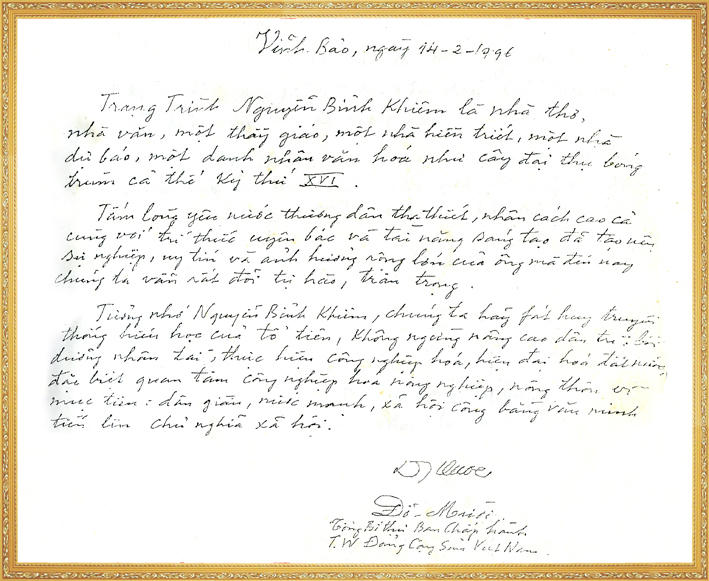 Vĩnh Bảo, ngày 14-2-1996
Trạng Trình Nguyễn Bỉnh Khiêm là nhà thơ,
nhà văn, một thầy giáo, một nhà hiền triết, một nhà
dự báo, một danh nhân văn hoá như cây đại thụ bóng
trùm cả thế kỷ thứ XVI.
Tấm lòng yêu nước thương dân tha thiết, nhân cách cao cả
cùng với trí thức uyên bác và tài năng sáng tạo đã tạo nên
sự nghiệp, uy tín và ảnh hưởng rộng lớn của ông mà đến nay
chúng ta vẫn rất đỗi tự hào, trân trọng.
Tưởng nhớ Nguyễn Bỉnh Khiêm, chúng ta hãy fát huy truyền
thống hiếu học của tổ tiên, không ngừng nâng cao dân trí, bồi
dưỡng nhân tài, thực hiện công nghiệp hoá, hiện đại hoá đất nước,
đặc biệt quan tâm công nghiệp hoá nông nghiệp, nông thôn vì
mục tiêu: dân giàu, nước mạnh, xã hội công bằng văn minh
tiến lên chủ nghĩa xã hội.
Đỗ Mười
Tổng Bí thư Ban Chấp hành
T.W Đảng Cộng Sản Việt Nam